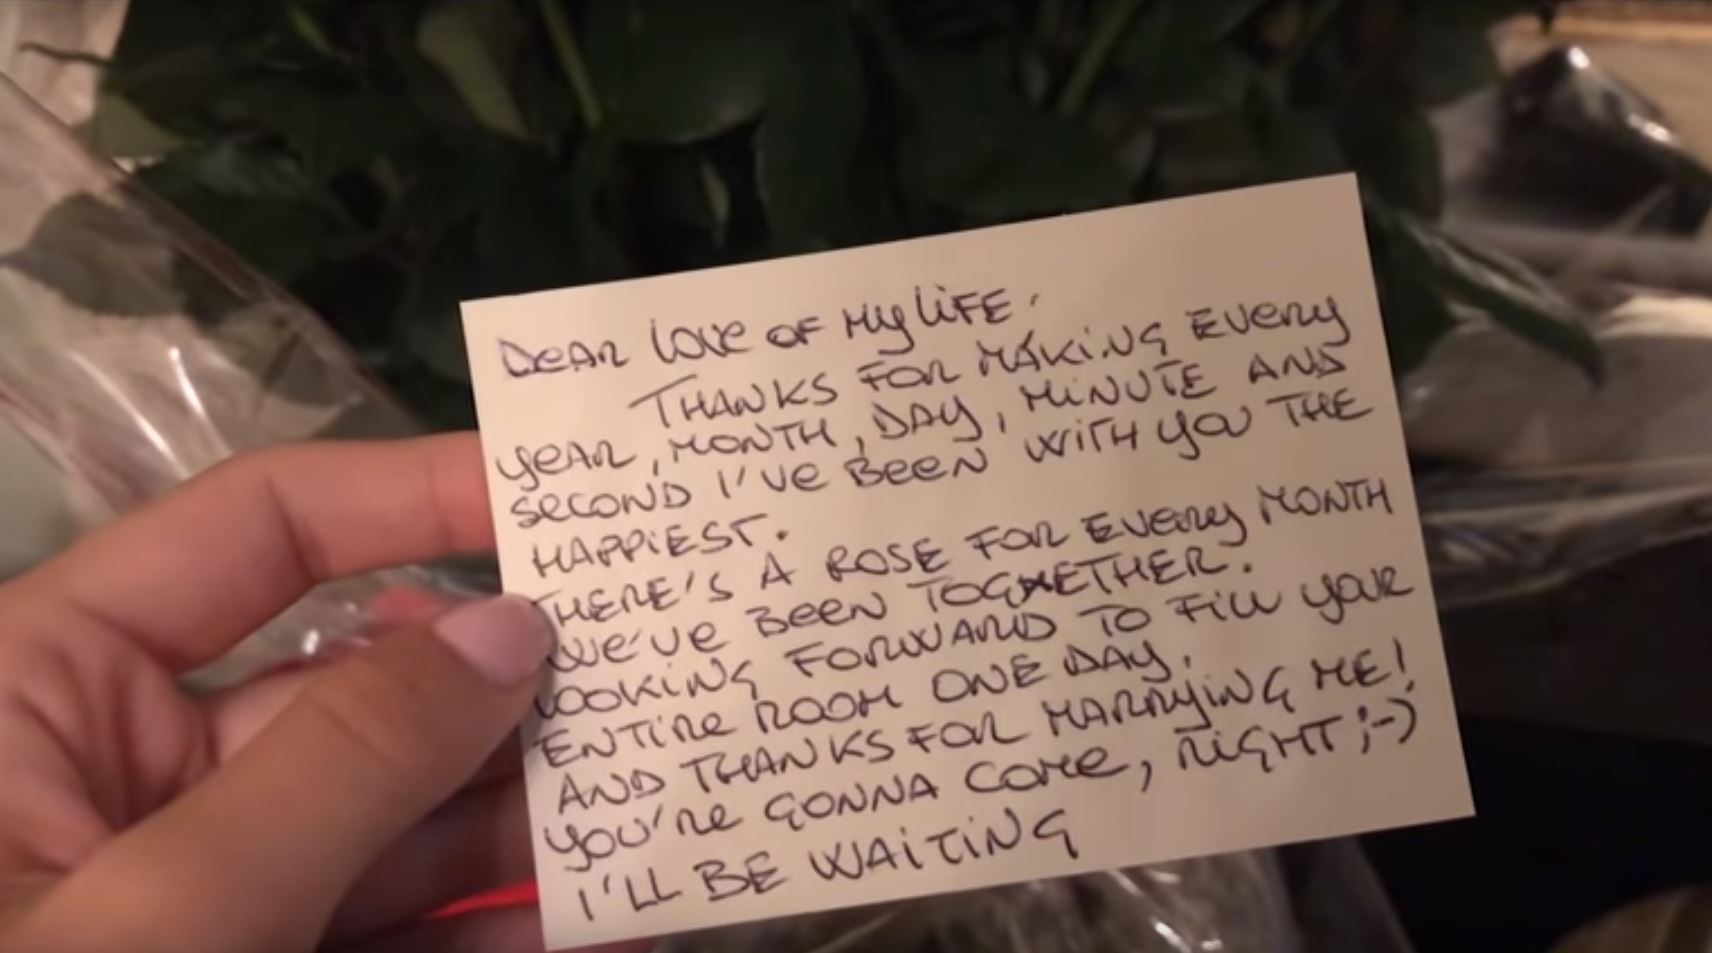 DEAR LOVE OF MY LIFE.
THANKS FOR MAKING EVERY
YEAR, MONTH, DAY, MINUTE AND
SECOND I'VE BEEN WITH YOU THE
HAPPIEST.
THERE'S A ROSE FOR EVERY MONTH
WE'VE BEEN TOGETHER.
LOOKING FORWARD TO FILL YOUR
ENTIRE ROOM ONE DAY.
AND THANKS FOR MARRYING ME!
YOU'RE GONNA COME, RIGHT ;-)
I'LL BE WAITING